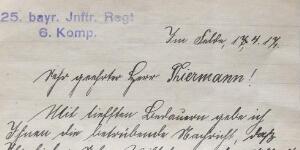 25. bayr. Jnftr. Regt
6. Komp.
Im Felde, 17.4.17.
Sehr geehrter Herr Thiermann!
Mit tiefsten Bedauern gebe ich
Ihnen die betrübende Nachricht, daß
Ihr